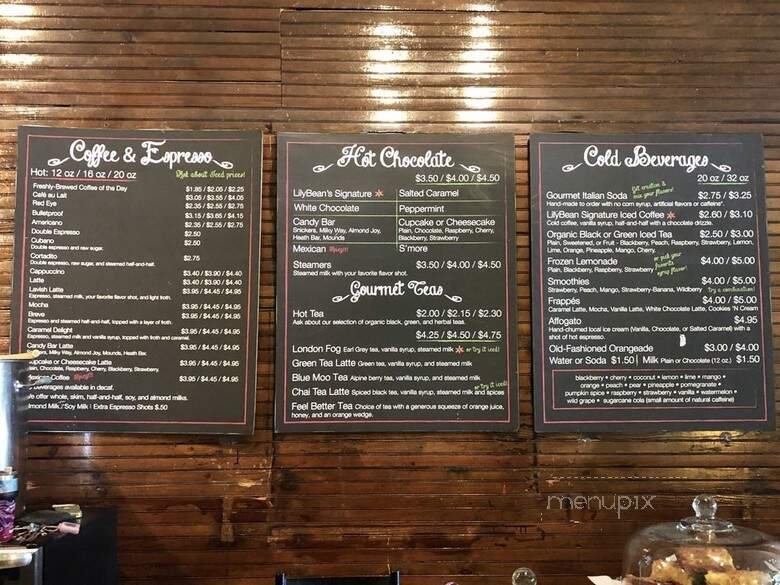 Coffee & Espresso
Hot: 12 oz / 16 oz / 20 oz
Ask about Iced prices!
Freshly-Brewed Coffee of the Day $1.85 / $2.05 / $2.25
Café au Lait $3.05 / $3.55 / $4.05
Red Eye $2.35 / $2.55 / $2.75
Bulletproof $3.15 / $3.65 / $4.15
Americano $2.35 / $2.55 / $2.75
Double Espresso $2.50
Cubano $2.50
Double espresso and raw sugar.
Cortadito $2.75
Double espresso, raw sugar, and steamed half-and-half.
Cappuccino $3.40 / $3.90 / $4.40
Latte $3.40 / $3.90 / $4.40
Lavish Latte $3.95 / $4.45 / $4.95
Espresso, steamed milk, your favorite flavor shot, and light froth.
Mocha $3.95 / $4.45 / $4.95
Breve $3.95 / $4.45 / $4.95
Espresso and steamed half-and-half, topped with a layer of froth.
Caramel Delight $3.95 / $4.45 / $4.95
Espresso, steamed milk and vanilla syrup, topped with froth and caramel.
Candy Bar Latte $3.95 / $4.45 / $4.95
Milky Way, Almond Joy, Mounds, Heath Bar.
Cupcake or Cheesecake Latte $3.95 / $4.45 / $4.95
Chocolate, Raspberry, Cherry, Blackberry, Strawberry.
Mexican Coffee $3.95 / $4.45 / $4.95
beverages available in decaf.
offer whole, skim, half-and-half, soy, and almond milks.
Almond Milk/Soy Milk | Extra Espresso Shots $.50
Hot Chocolate
$3.50 / $4.00 / $4.50
LilyBean's Signature Salted Caramel
White Chocolate Peppermint
Candy Bar Cupcake or Cheesecake
Snickers, Milky Way, Almond Joy, Plain, Chocolate, Raspberry, Cherry,
Heath Bar, Mounds Blackberry, Strawberry
Mexican S'more
Steamers $3.50 / $4.00 / $4.50
Steamed milk with your favorite flavor shot.
Gourmet Teas
Hot Tea $2.00 / $2.15 / $2.30
Ask about our selection of organic black, green, and herbal teas.
$4.25 / $4.50 / $4.75
London Fog Earl Grey tea, vanilla syrup, steamed milk or try it iced!
Green Tea Latte Green tea, vanilla syrup, and steamed milk
Blue Moo Tea Alpine berry tea, vanilla syrup, and steamed milk
or try it iced!
Chai Tea Latte Spiced black tea, vanilla syrup, steamed milk and spices
Feel Better Tea Choice of tea with a generous squeeze of orange juice,
honey, and an orange wedge.
Cold Beverages
20 oz / 32 oz
Get creative & mix your flavors!
Gourmet Italian Soda $2.75 / $3.25
Hand-made to order with no corn syrup, artificial flavors or caffeine*.
LilyBean Signature Iced Coffee $2.60 / $3.10
Cold coffee, vanilla syrup, half-and-half with a chocolate drizzle.
Organic Black or Green Iced Tea $2.50 / $3.00
Plain, Sweetened, or Fruit - Blackberry, Peach, Raspberry, Strawberry, Lemon,
Lime, Orange, Pineapple, Mango, Cherry.
Frozen Lemonade or pick your favorite syrup flavor! $4.00 / $5.00
Plain, Blackberry, Raspberry, Strawberry
Smoothies $4.00 / $5.00
Strawberry, Peach, Mango, Strawberry-Banana, Wildberry Try a combination!
Frappés $4.00 / $5.00
Caramel Latte, Mocha, Vanilla Latte, White Chocolate Latte, Cookies 'N Cream
Affogato $4.95
Hand-churned local ice cream (Vanilla, Chocolate, or Salted Caramel) with a
shot of hot espresso.
Old-Fashioned Orangeade $3.00 / $4.00
Water or Soda $1.50 | Milk Plain or Chocolate (12 oz.) $1.50
blackberry • cherry • coconut • lemon • lime • mango •
orange • peach • pear • pineapple • pomegranate •
pumpkin spice • raspberry • strawberry • vanilla • watermelon •
wild grape • sugarcane cola (small amount of natural caffeine)
menupix